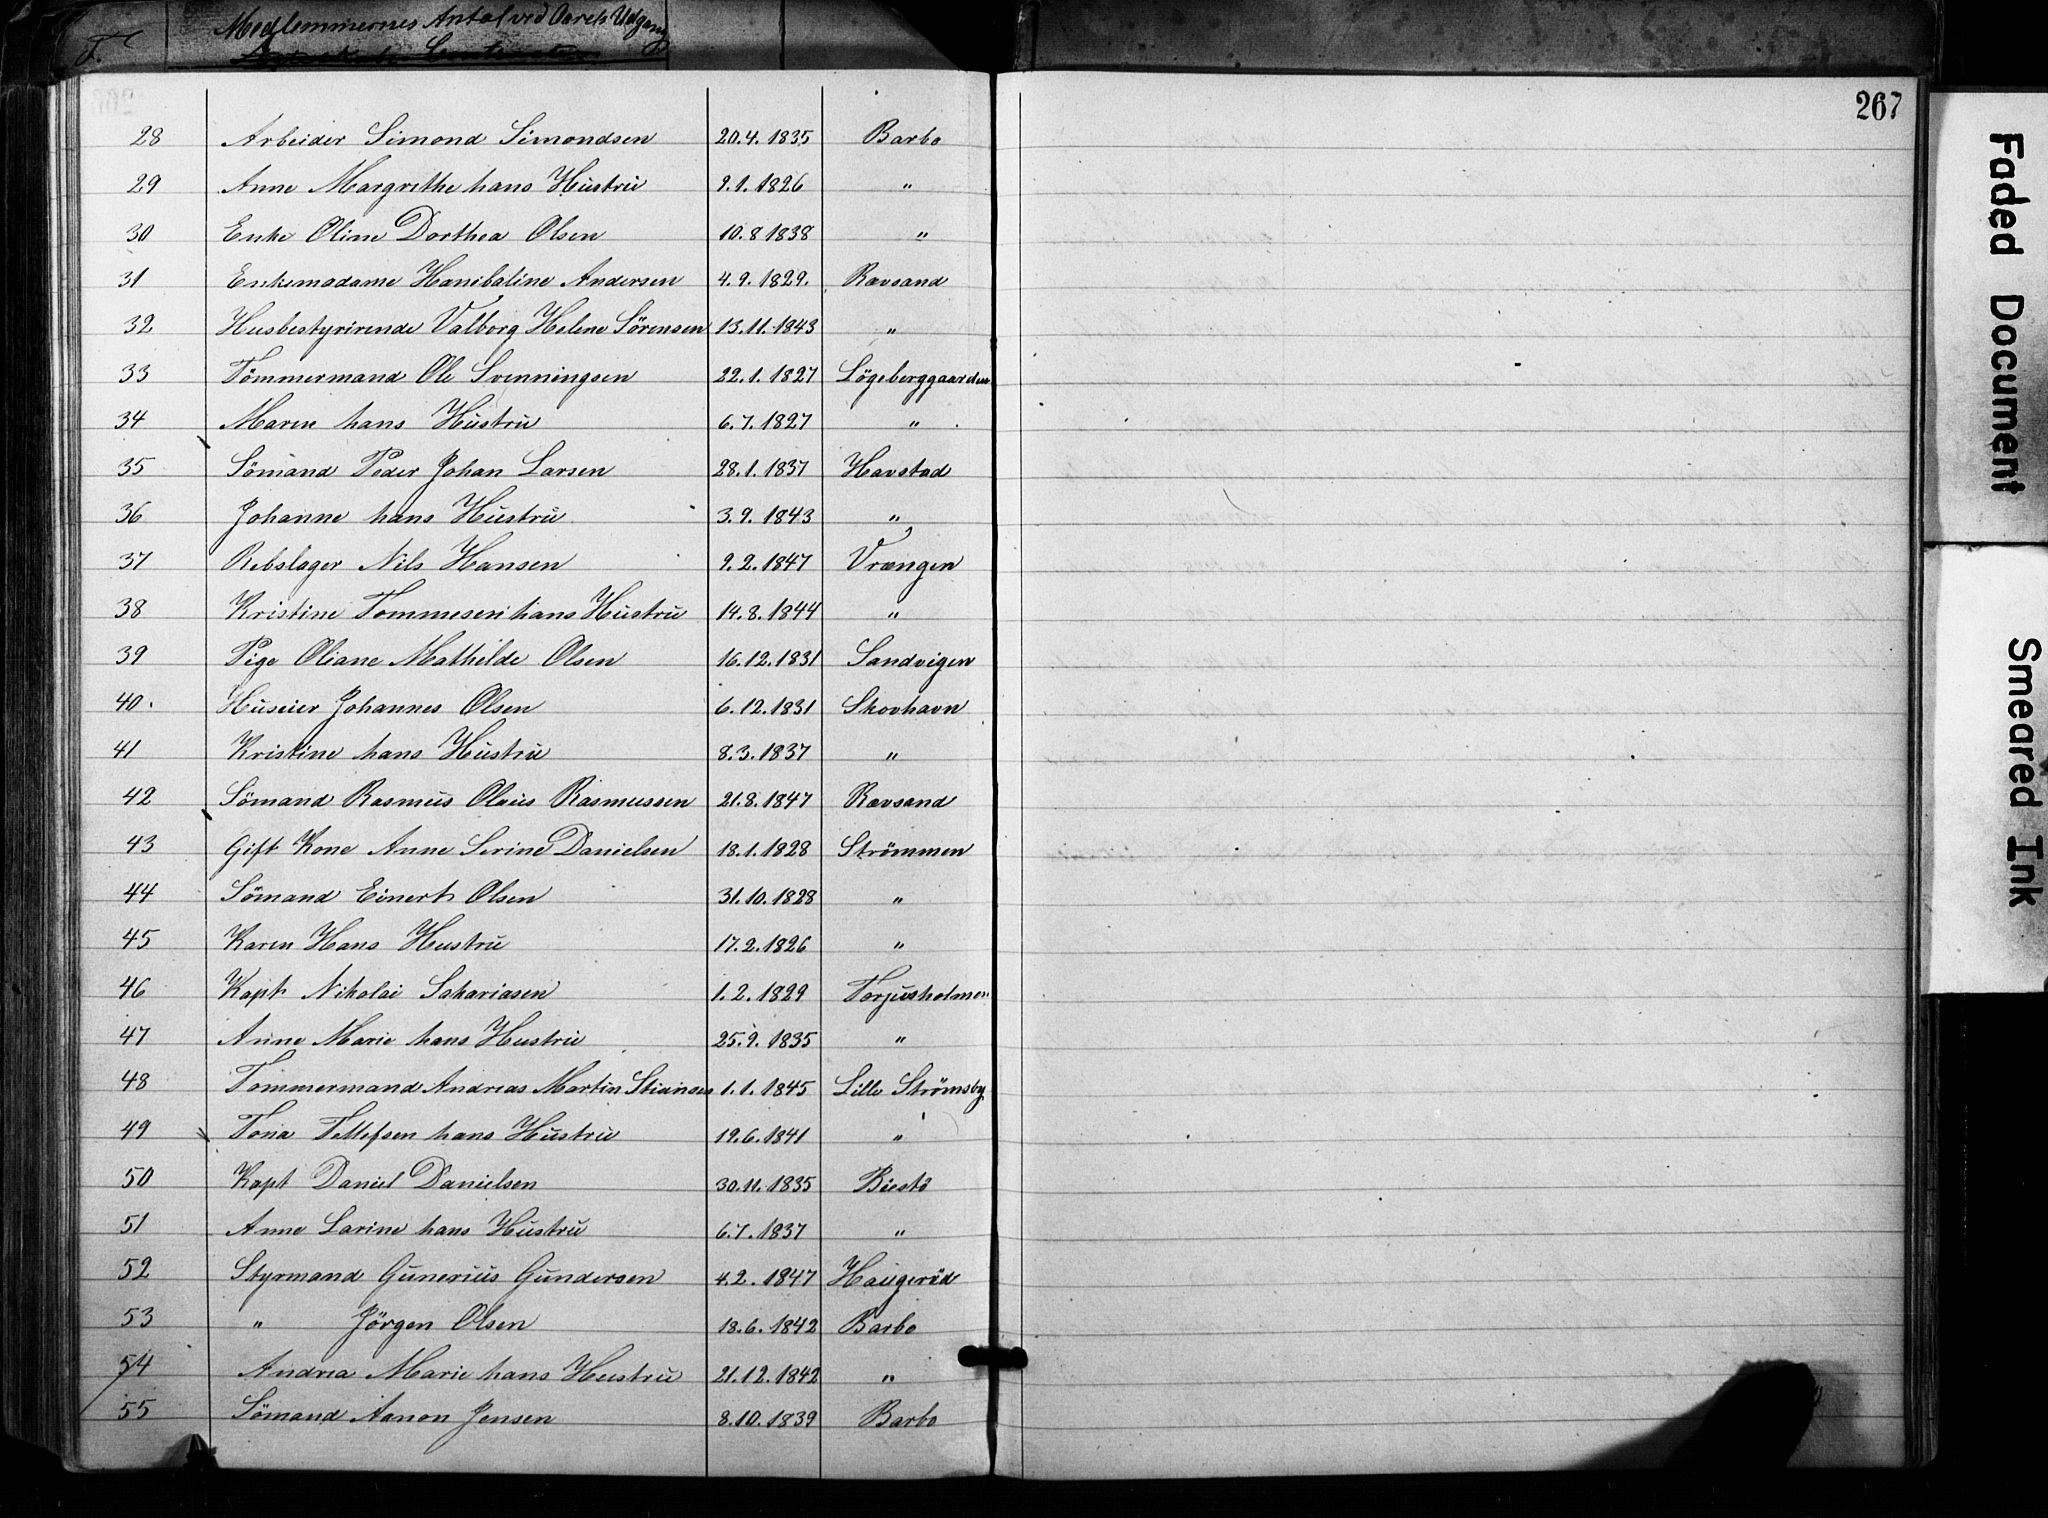 T. Medlemmernes Antal ved Aarets Udgang
267
28 Arbeider Simond Simondsen 20.4.1835 Barbo
29 Anne Margrethe hans Hustru 9.1.1826 "
30 Enke Oline Dorthea Olsen 10.8 1838 "
31 Enkemadame Hanibaline Andersen 4.9.1829. Ravsand
32 Husbestyrirende Valborg Helene Sörensen 13.11.1843 "
33 Tömmermand Ole Svenningsen 22.1.1827 Lögeberggaarden
34 Maren hans Hustru 6.7.1827 "
35 Sömand Peder Johan Larsen 28.1.1837 Havstad
36 Johanne hans Hustru 3.9.1843 "
37 Rebslager Nils Hansen 9.2.1847 Vrængen
38 Kristine Tommesen hans Hustru 14.8.1844 "
39 Pige Oliane Mathilde Olsen 16.12.1831 Sandvigen
40. Huseier Johannes Olsen 6.12.1831 Skovhavn
41 Kristine hans Hustru 8.3.1837 "
42 Sömand Rasmus Olaus Rasmussen 21.8.1847 Ravsand
43 Gift Kone Anne Serine Danielsen 18.1.1828 Strömmen
44 Sömand Einert Olsen 31.10.1828 "
45 Karen Hans Hustru 17.2.1826 "
46 Kapt Nikolai Sakariasen 1.2.1829 Torjusholmen
47 Anne Marie hans Hustru 25.9.1835 "
48 Tommermand Andreas Martin Stiansen 1.1.1845 Lille Strömsby
49 Tona Tellefsen hans Hustru 19.6.1841 "
50 Kapt Daniel Danielsen 30.11.1835 Biestö
51 Anne Larine hans Hustru 6.7.1837 "
52 Styrmand Gunerius Gundersen 4.2.1847 Haugeröd
53 " Jörgen Olsen 18.6.1842 Barbo
54 Andrea Marie hans Hustru 21.12.1842 "
55 Sömand Aanon Jensen 8.10.1839 Barbo
Faded Document
Smeared Ink